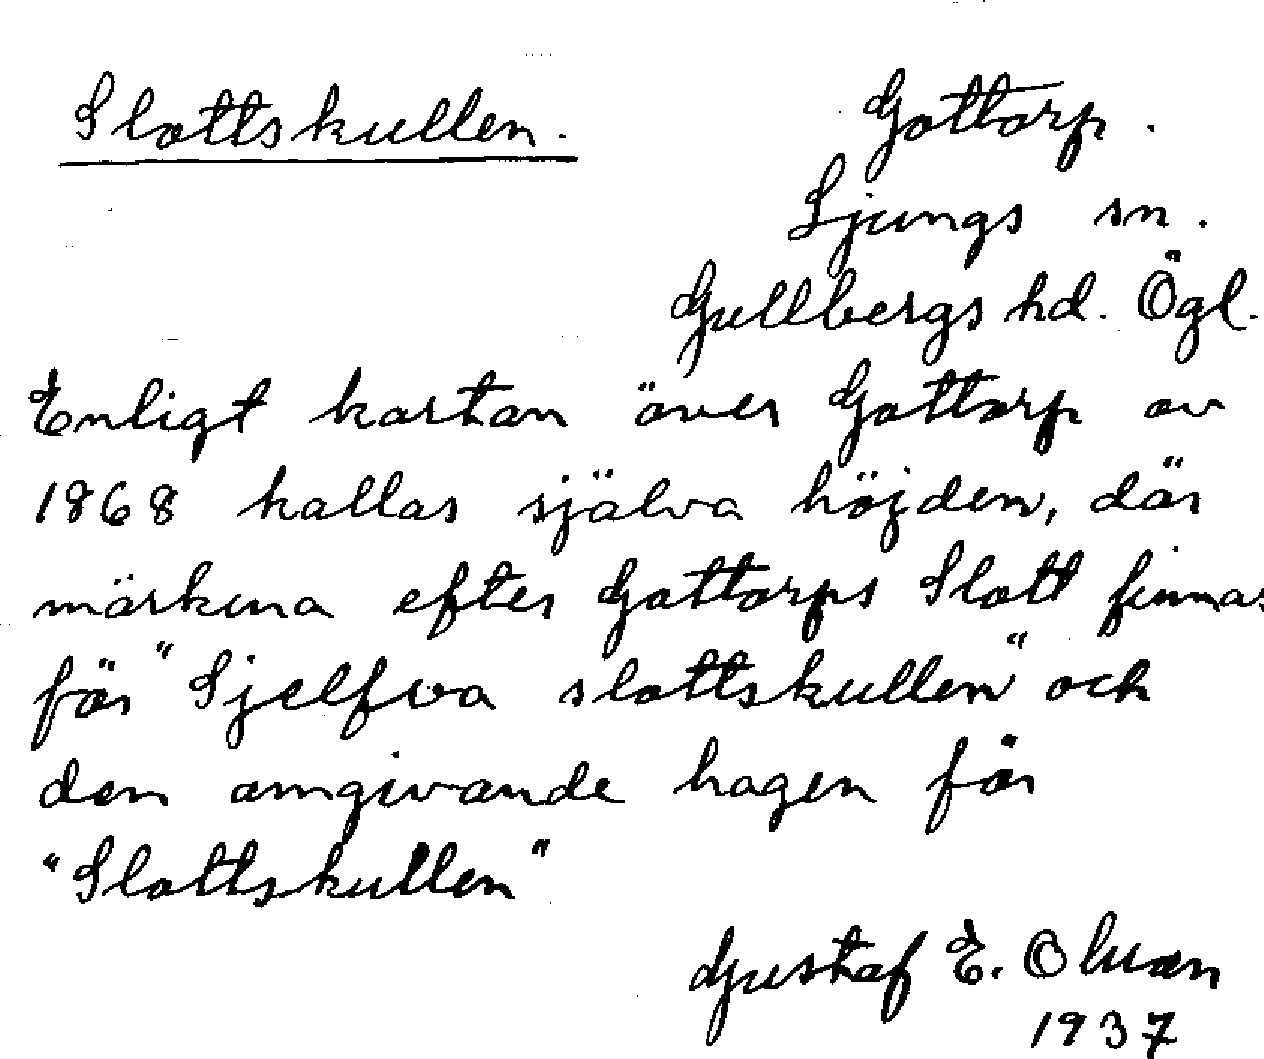 Slottskullen.
Gottorp.
Ljungs sn.
Gullbergs hd. Ögl.
Enligt kartan över Gottorp av
1868 kallas själva höjden, där
märkena efter Gottorps Slott finnas
för "Sjelfva slottskullen" och
den omgivande hagen för
"Slottskullen"
Gustaf E.
1937